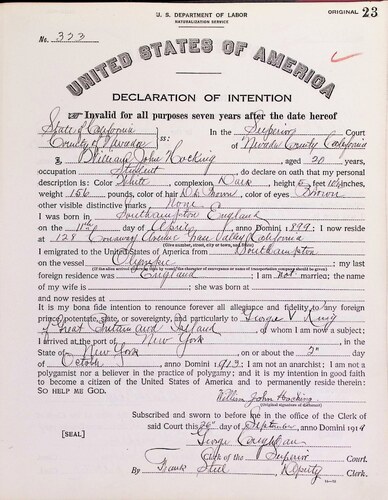 U. S. DEPARTMENT OF LABOR
NATURALIZATION SERVICE
ORIGINAL 23
No. 323
UNITED STATES OF AMERICA
DECLARATION OF INTENTION
Invalid for all purposes seven years after the date hereof
State of California
County of Nevada ss: In the Superior Court of Nevada County California
I, William John Hocking, aged 20 years,
occupation Student, do declare on oath that my personal
description is: Color White, complexion Dark, height 5 feet 10½ inches,
weight 156 pounds, color of hair Dk Brown, color of eyes Brown
other visible distinctive marks None
I was born in Southampton England
on the 11th day of April, anno Domini 1899; I now reside
at 128 Conaway Avenue Grass Valley California
I emigrated to the United States of America from Southampton
on the vessel Olympic; my last
foreign residence was England. I am not married; the name
of my wife is; she was born at
and now resides at
It is my bona fide intention to renounce forever all allegiance and fidelity to any foreign
prince, potentate, state, or sovereignty, and particularly to George V King
of Great Britain and Ireland, of whom I am now a subject;
I arrived at the port of New York, in the
State of New York, on or about the 2" day
of Octob, anno Domini 1913; I am not an anarchist; I am not a
polygamist nor a believer in the practice of polygamy; and it is my intention in good faith
to become a citizen of the United States of America and to permanently reside therein:
SO HELP ME GOD.
William John Hocking
Subscribed and sworn to before me in the office of the Clerk of
[SEAL] said Court this 26" day of September, anno Domini 1919
Clerk of the Superior Court.
By Frank Steel, Deputy Clerk.